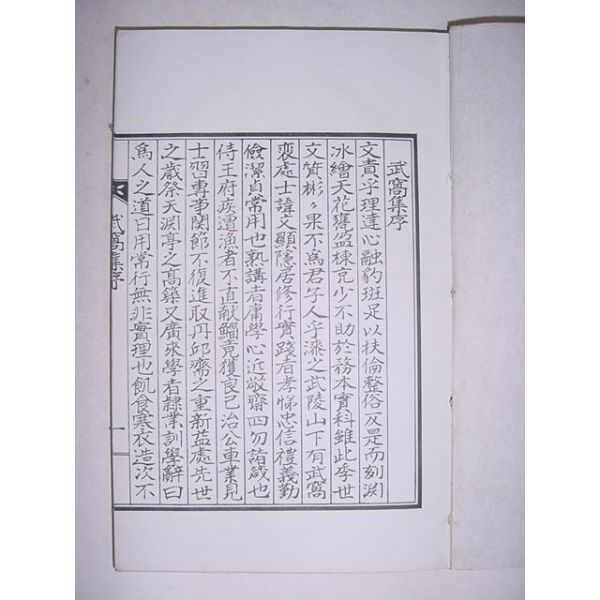 武窩集序
文貴乎理達心融豹斑足以扶倫整俗反是而刻淵
冰繪天花甕盆棟充少不助於務本實科雖此季世
文質彬〃果不爲君子人乎漆之武陵山下有武窩
裵處士諱文顯隱居修行實踐者孝悌忠信禮義勤
儉潔貞常用也熟講者庸學心近敬齋四勿諸箴也
侍王府疾遭漁者不直獻鯔竟獲良已治公車業見
士習專第関節不復進取丹邱齋之重新益處先世
之歲祭天淵亭之高築又廣來學者隷業訓學辭曰
爲人之道日用常行無非實理也飢食寒衣造次不
武窩集序
一